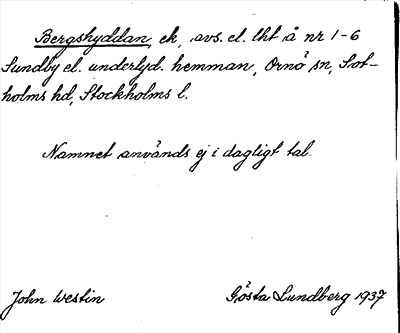 Bergshyddan, ek, avs. el. lht å nr 1-6
Sundby el. underlyd. hemman, Ornö sn, Sot-
holms hd, Stockholms l.
Namnet används ej i dagligt tal.
John Westin
Gösta Lundberg 1937